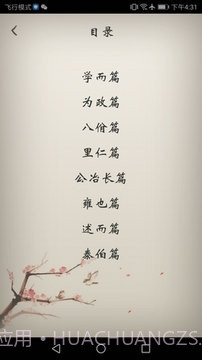 飞行模式 下午4:31
目录
学而篇
为政篇
八佾篇
里仁篇
公冶长篇
雍也篇
述而篇
泰伯篇
应用·HUACHUANGZS.